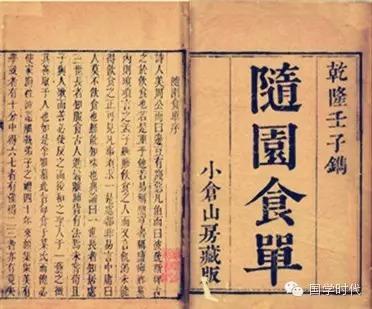 乾隆壬子鐫
隨園食單
小倉山房藏版
隨園食單序
詩人美周公而曰籩豆有踐惡凡伯而曰彼疏斯稗古
之於飲食也若是重乎他若易稱鼎烹書稱鹽梅鄉黨
內則瑣瑣言之孟子雖賤飲食之人而又言飢渴未能
得飲食之正可見凡事須求一是處都非易言中庸曰
人莫不飲食也鮮能知味也典論曰一世長者知居處
三世長者知服食古人進鬐離肺皆有法焉未嘗苟且
子與人歌而善必使反之而後和之聖人於一藝之微
其善取於人也如是余雅慕此旨每食於某氏而飽必
使家廚往彼灶觚執弟子之禮四十年來頗集衆美有
學就者有十分中得六七者有僅得二三者亦有竟失
国学时代